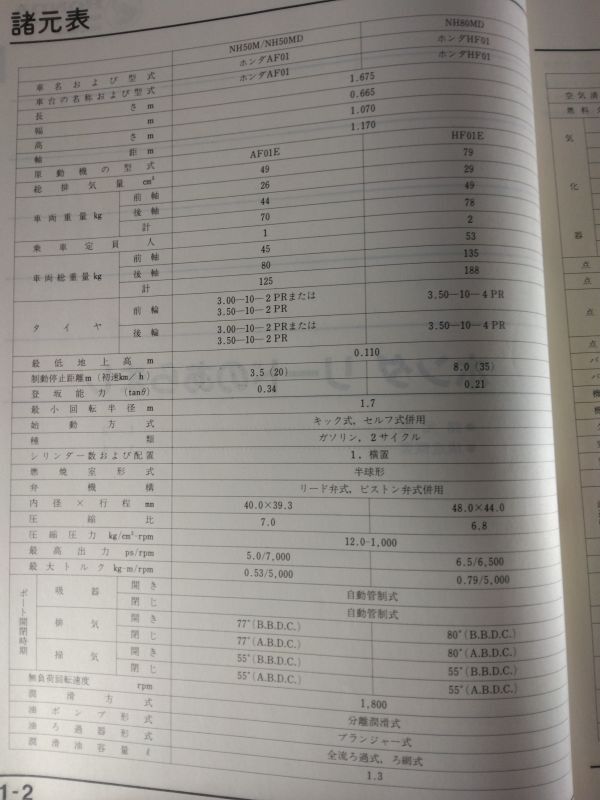 諸元表
NH50M/NH50MD NH80MD
車名および型式 ホンダAF01 ホンダHF01
車台の名称および型式 ホンダAF01 ホンダHF01
長さ m 1.675
幅 m 0.665
高さ m 1.070
軸距 m 1.170
原動機の型式 AF01E HF01E
総排気量 cm³ 49 79
車両重量 kg 前軸 26 29
後軸 44 49
計 70 78
乗車定員 人 1 2
車両総重量 kg 前軸 45 53
後軸 80 135
計 125 188
タイヤ 前輪 3.00—10—2PRまたは 3.50—10—4PR
3.50—10—2PR
後輪 3.00—10—2PRまたは 3.50—10—4PR
3.50—10—2PR
最低地上高 m 0.110
制動停止距離 m (初速km/h) 3.5 (20) 8.0 (35)
登坂能力 (tanθ) 0.34 0.21
最小回転半径 m 1.7
始動方式 キック式, セルフ式併用
種類 ガソリン, 2サイクル
シリンダー数および配置 1. 横置
燃焼室形式 半球形
弁機構 リード弁式, ピストン弁式併用
内径×行程 mm 40.0×39.3 48.0×44.0
圧縮比 7.0 6.8
圧縮圧力 kg/cm²-rpm 12.0-1,000
最高出力 ps/rpm 5.0/7,000 6.5/6,500
最大トルク kg-m/rpm 0.53/5,000 0.79/5,000
ポート開閉時期 吸器 開き 自動管制式
閉じ 自動管制式
排気 開き 77°(B.B.D.C.) 80°(B.B.D.C.)
閉じ 77°(A.B.D.C.) 80°(A.B.D.C.)
掃気 開き 55°(B.B.D.C.) 55°(B.B.D.C.)
閉じ 55°(A.B.D.C.) 55°(A.B.D.C.)
無負荷回転速度 rpm 1,800
潤滑方式 分離潤滑式
油ポンプ形式 プランジャー式
油ろ過器形式 全流ろ過式, ろ網式
潤滑油容量 ℓ 1.3
1-2
空気清
燃料
気
化
器
点
点
点
点